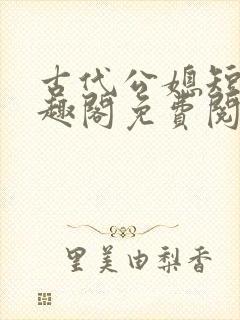 古代公媳短
趣阁免费阅
里美由梨香